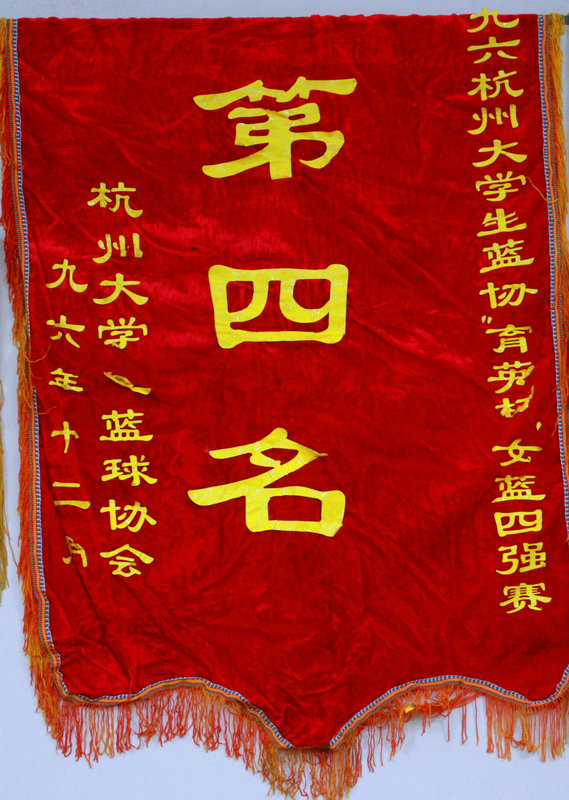 九六杭州大学生蓝协“育英杯”女蓝四强赛
第四名
杭州大学 蓝球协会
九六年十二月